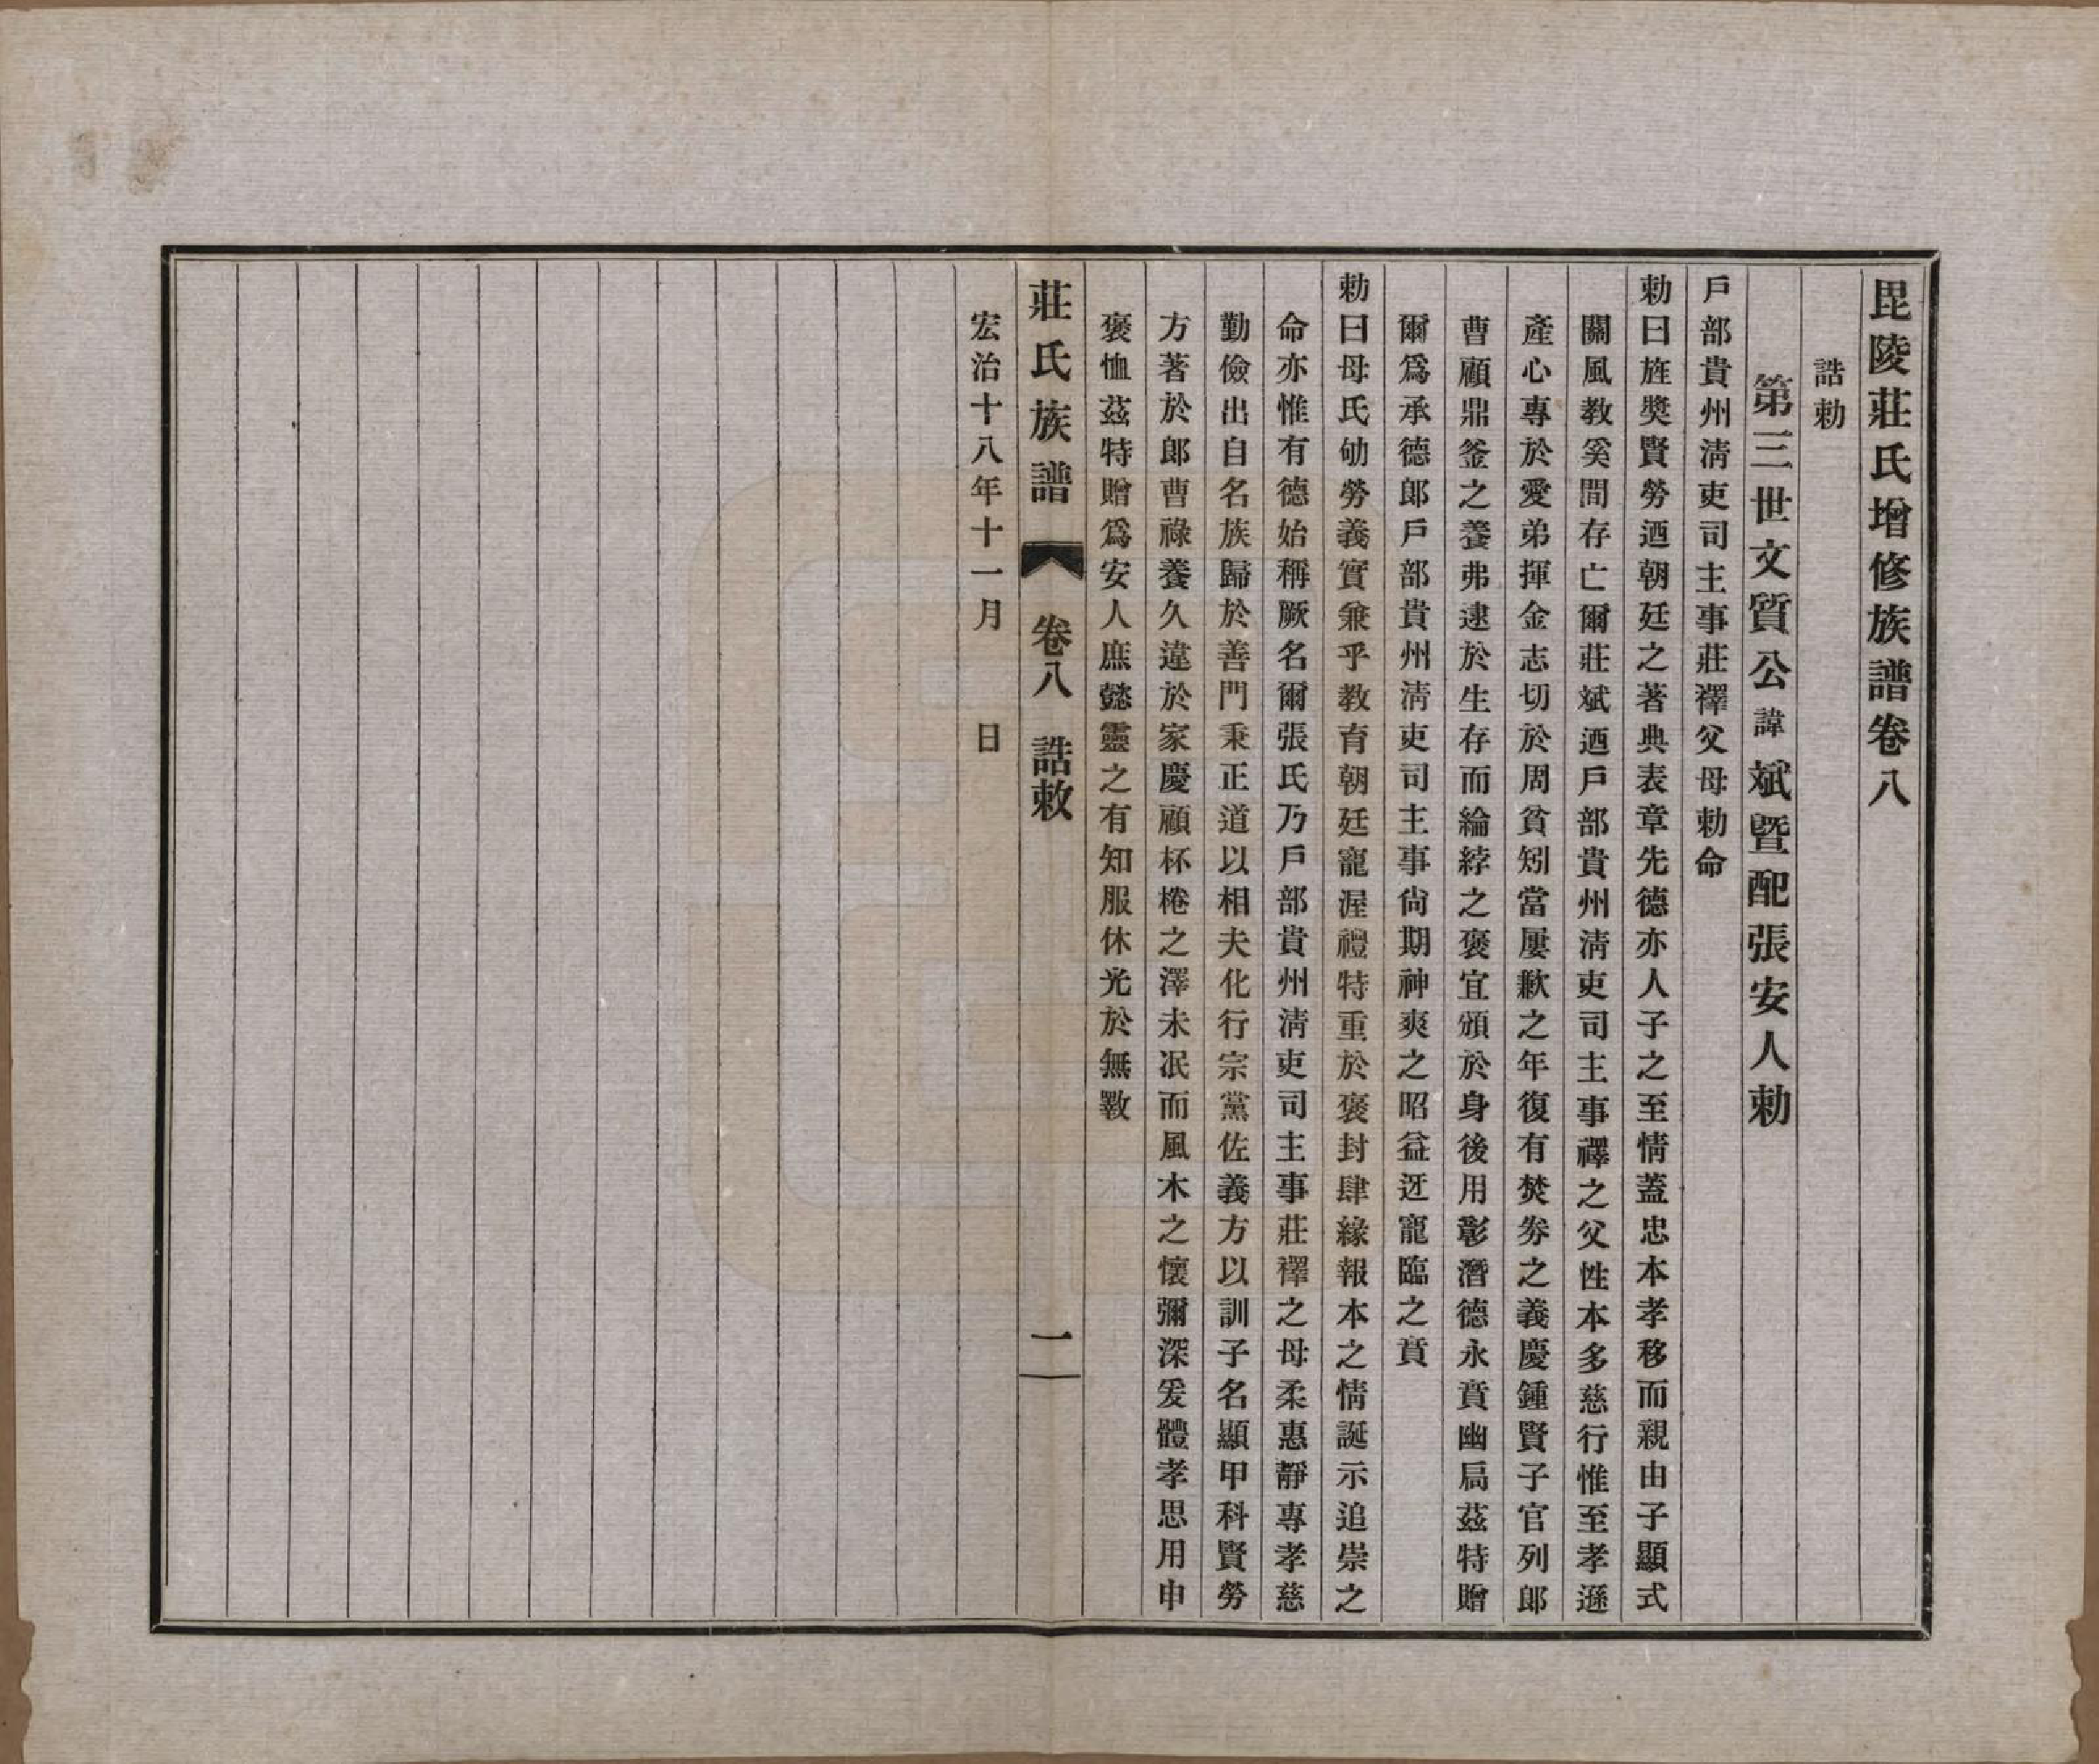 毘陵莊氏增修族譜卷八
誥勅
第三世文質公諱斌暨配張安人勅
戶部貴州清吏司主事莊襗父母勅命
勅曰旌獎賢勞迺朝廷之著典表章先德亦人子之至情蓋忠本孝移而親由子顯式
關風教奚間存亡爾莊斌迺戶部貴州清吏司主事襗之父性本多慈行惟至孝遜
產心專於愛弟揮金志切於周貧矧當屢歉之年復有焚券之義慶鍾賢子官列郞
曹顧鼎釜之養弗逮於生存而綸綍之褒宜頒於身後用彰潛德永賁幽扃茲特贈
爾爲承德郞戶部貴州清吏司主事尙期神爽之昭益迓寵臨之賁
勅曰母氏劬勞義實兼乎教育朝廷寵渥禮特重於褒封肆緣報本之情誕示追崇之
命亦惟有德始稱厥名爾張氏乃戶部貴州清吏司主事莊襗之母柔惠靜專孝慈
勤儉出自名族歸於善門秉正道以相夫化行宗黨佐義方以訓子名顯甲科賢勞
方著於郞曹祿養久違於家慶顧杯棬之澤未泯而風木之懷彌深爰體孝思用申
褒恤茲特贈爲安人庶懿靈之有知服休光於無斁
宏治十八年十一月　　日
莊氏族譜　卷八　誥敕　一